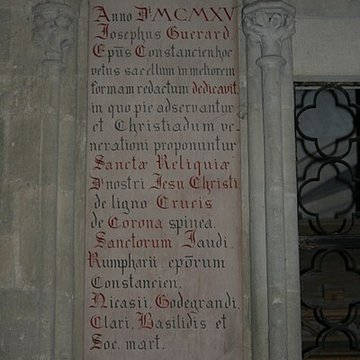 Anno Dⁱ MCMXV
Josephus Guerard
Epūs Constancien hoc
vetus sacellum in meliorem
formam redactum dedicavit
in quo pie adservantur
et Christiadum ve-
nerationi proponuntur
Sanctæ Reliquiæ
D nostri Jesu Christi
de ligno Crucis
de Corona spinea.
Sanctorum Laudi,
Rumpharii, epōrum
Constancien,
Nicasii, Godegrandi,
Clari, Basilidis et
Soc. mart.